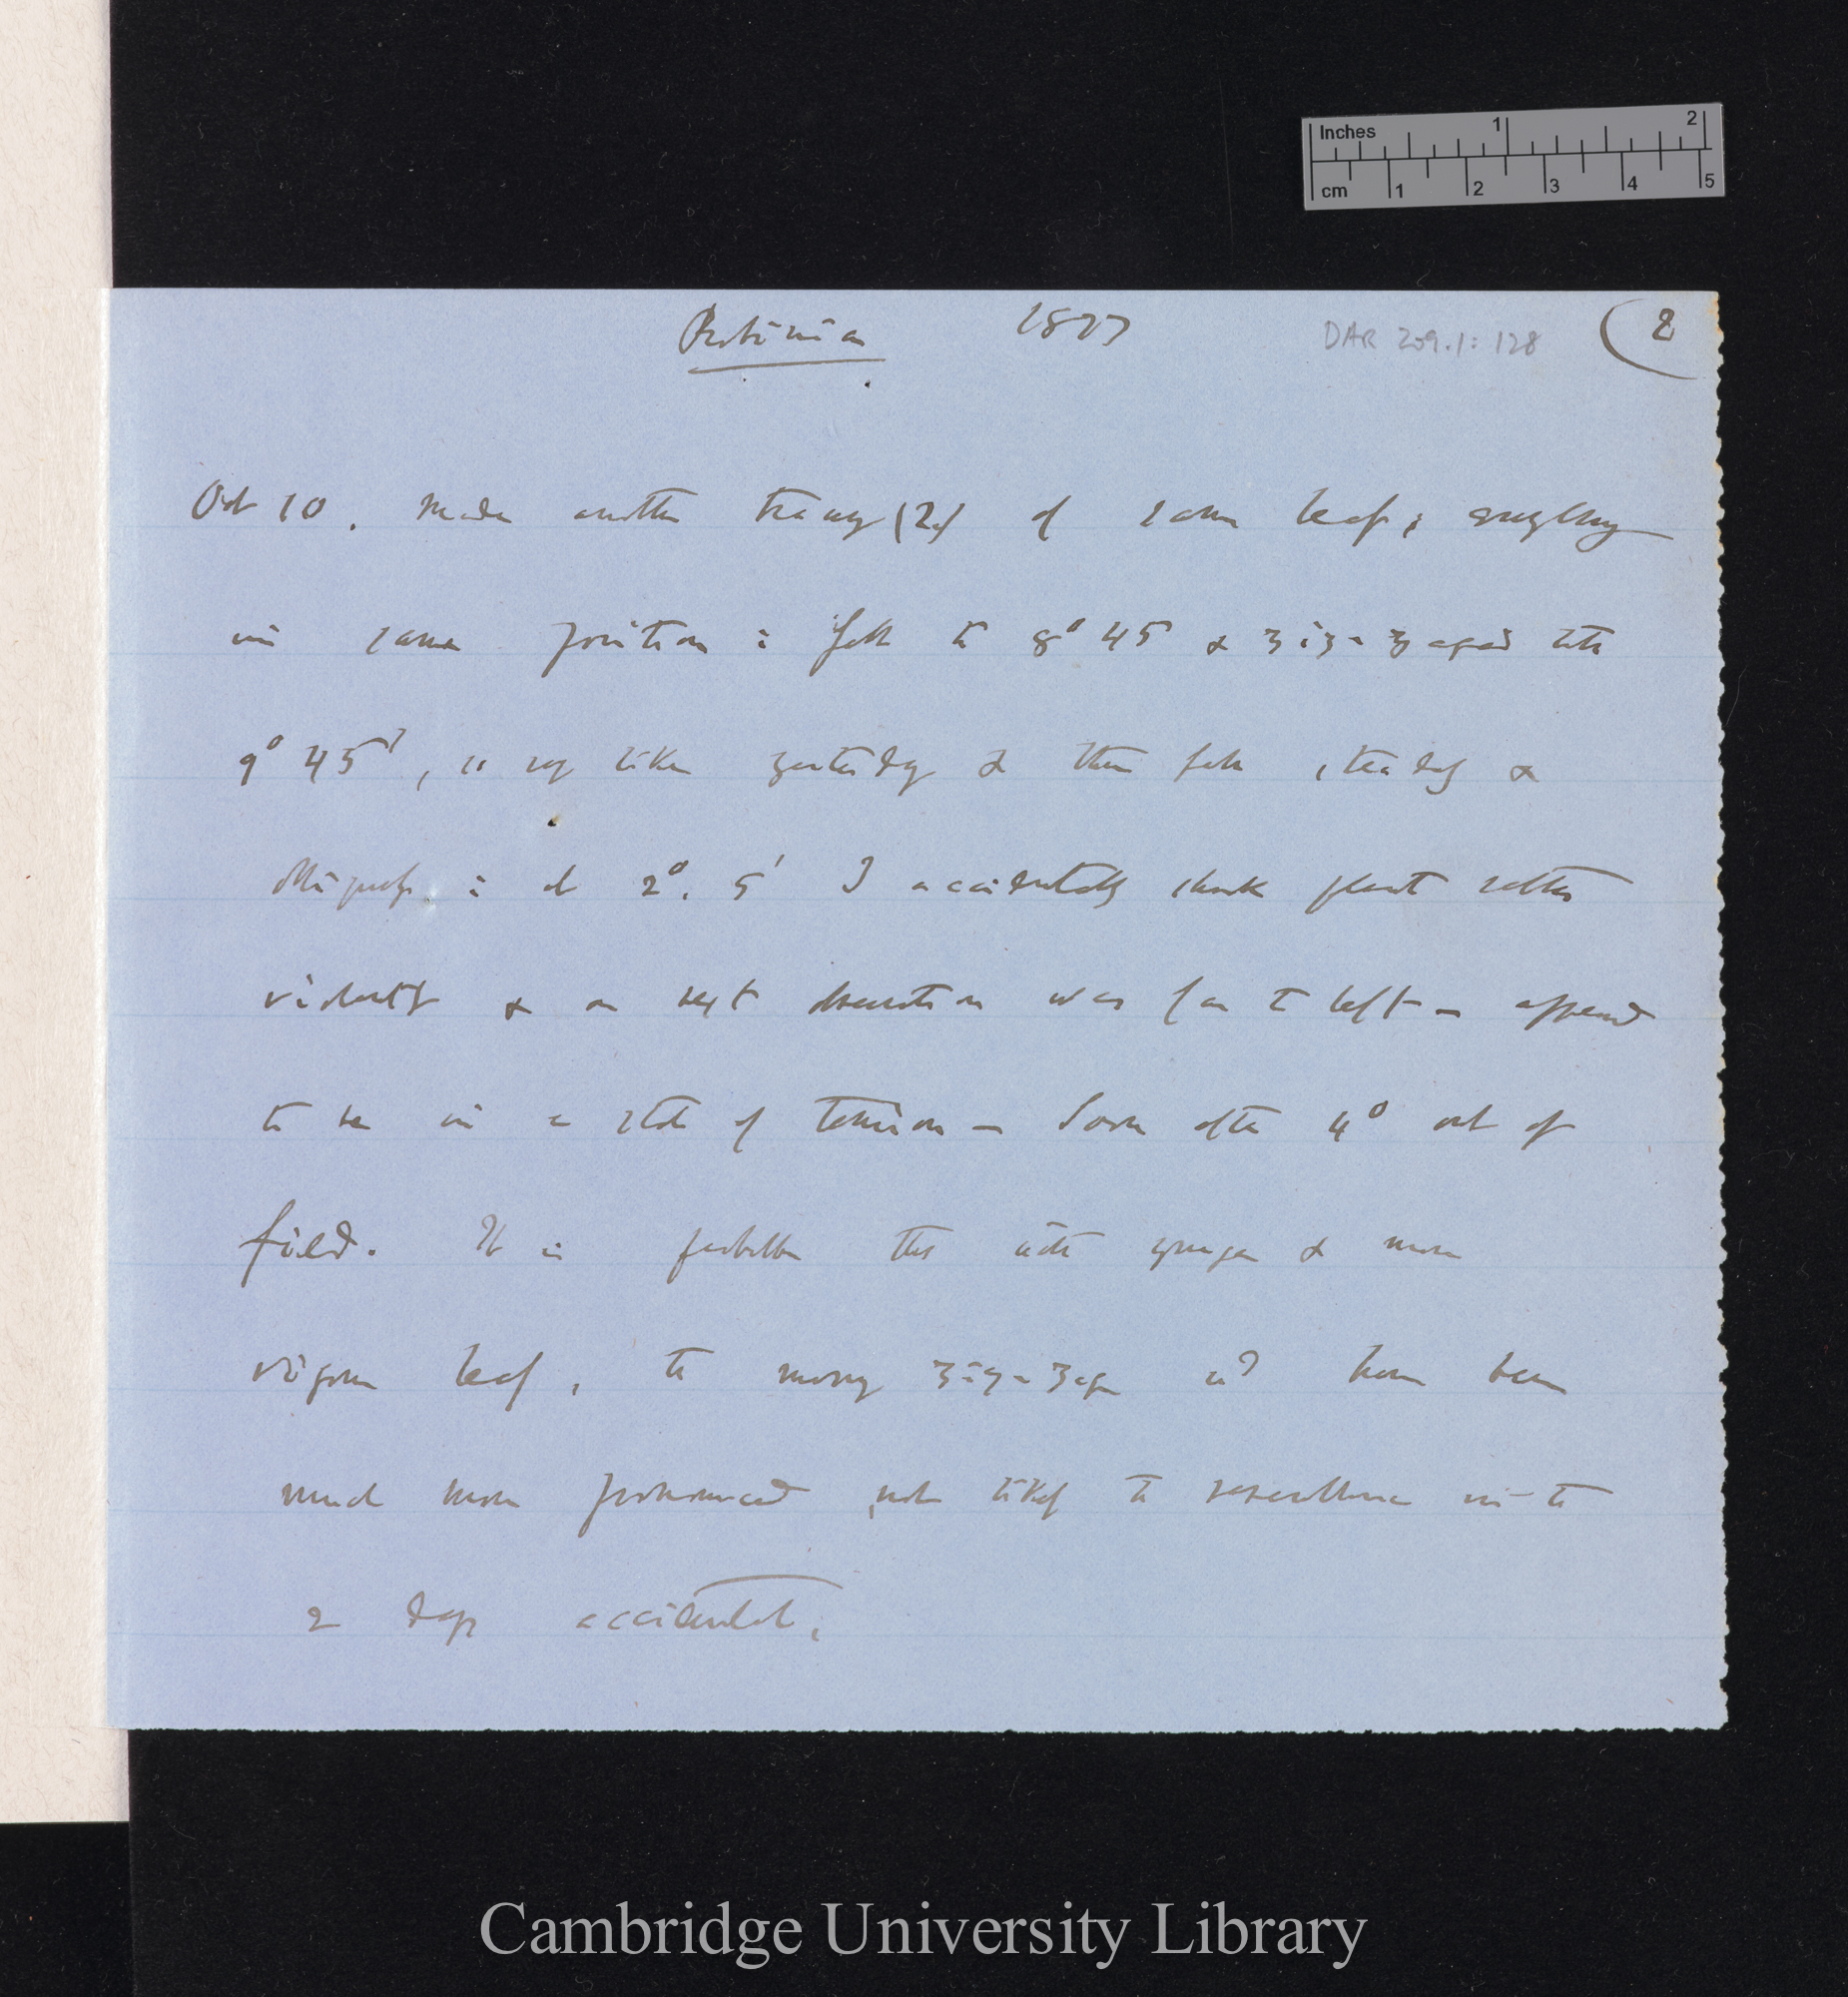 Inches 1 2
cm 1 2 3 4 5
Robinia 1877 DAR 209.1: 128 (2
Oct 10. Made another tracing (2d) of same leaf;
in same position: fell to 8° 45 & zig-zaged till
9° 45', like yesterday & then fell steadily &
obliquely: at 2°. 5' I accidentally shook plant rather
violently & on next observation was far to left — appeared
to be in a state of tension — Soon after 4° out of
field. It is probable that with younger & more
vigorous leaf, the morning zig-zags wd have been
much more pronounced, not likely the resemblance in the
2 days accidental.
Cambridge University Library